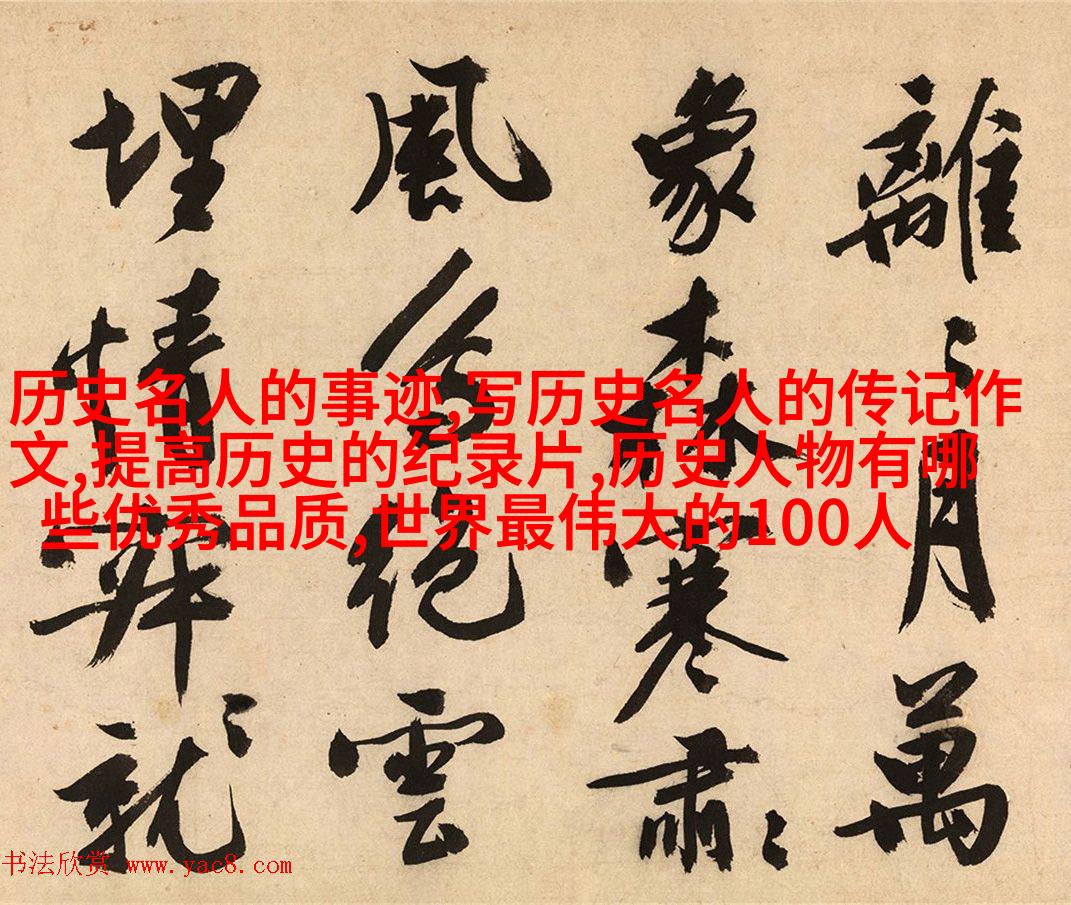 離〻月萬
象森寒肅〻
風絕雲
埋情就
历史名人的事迹,写历史名人的传记作
文,提高历史的纪录片,历史人物有哪
些优秀品质,世界最伟大的100人
书法欣赏 www.yac8.com